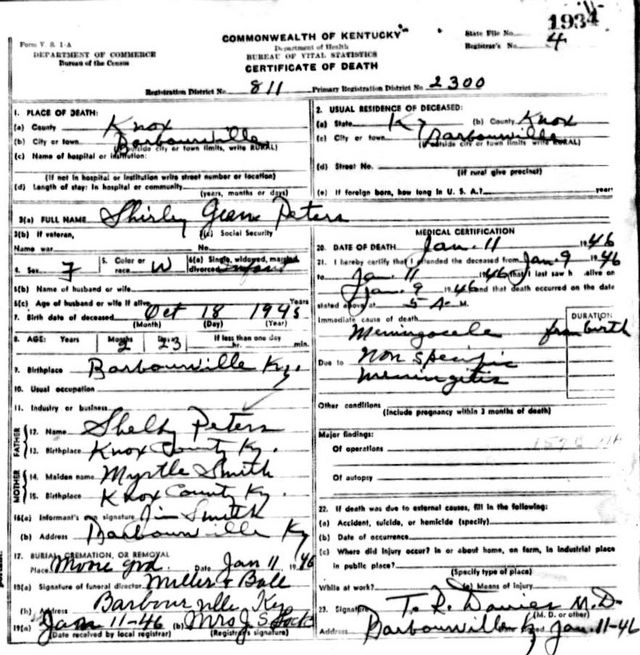 1934
Form V. S. 1-A
DEPARTMENT OF COMMERCE
Bureau of the Census
COMMONWEALTH OF KENTUCKY
Department of Health
BUREAU OF VITAL STATISTICS
CERTIFICATE OF DEATH
State File No.
Registrar's No. 4
Registration District No. 811 Primary Registration District No. 2300
1. PLACE OF DEATH:
(a) County Knox
(b) City or town Barbourville
(Outside city or town limits, write RURAL)
(c) Name of hospital or institution:
(If not in hospital or institution write street number or location)
(d) Length of stay: In hospital or community
(years, months or days)
2. USUAL RESIDENCE OF DECEASED:
(a) State Ky (b) County Knox
(c) City or town Barbourville
(If outside city or town limits, write RURAL)
(d) Street No.
(If rural give precinct)
(e) If foreign born, how long in U. S. A.? years
3(a) FULL NAME Shirley Gean Peters
3(b) If veteran, Name war
3(c) Social Security No.
4. Sex F 5. Color or race W 6(a) Single, widowed, married, divorced Infant
6(b) Name of husband or wife
6(c) Age of husband or wife if alive Years
7. Birth date of deceased Oct 18 1945
(Month) (Day) (Year)
8. AGE: Years Months 2 Days 23 If less than one day hr. min.
9. Birthplace Barbourville Ky.
10. Usual occupation
11. Industry or business
FATHER
12. Name Shelby Peters
13. Birthplace Knox County Ky.
MOTHER
14. Maiden name Myrtle Smith
15. Birthplace Knox County Ky.
16(a) Informant's own signature Jim Smith
(b) Address Barbourville Ky
17. BURIAL, CREMATION, OR REMOVAL
Place Moore grd. Date Jan 11 1946
18(a) Signature of funeral director Miller & Ball
(b) Address Barbourville Ky
19(a) Jan 11-46 (b) Mrs J S
(Date received by local registrar) (Registrar's signature)
MEDICAL CERTIFICATION
20. DATE OF DEATH Jan. 11 1946
21. I hereby certify that I attended the deceased from Jan. 9 1946
to Jan. 11 1946, that I last saw h alive on
Jan. 9 1946 and that death occurred on the date
stated above at 5 A M.
Immediate cause of death
DURATION
Meningocele from birth
Due to Non specific
meningitis
Other conditions
(Include pregnancy within 3 months of death)
Major findings:
Of operations
Of autopsy
22. If death was due to external causes, fill in the following:
(a) Accident, suicide, or homicide (specify)
(b) Date of occurrence
(c) Where did injury occur? In or about home, on farm, in industrial place
in public place?
(Specify type of place)
While at work? (e) Means of injury
23. Signature T. R. Davies M.D.
(M. D. or other)
Address Barbourville Ky Date signed Jan. 11-46